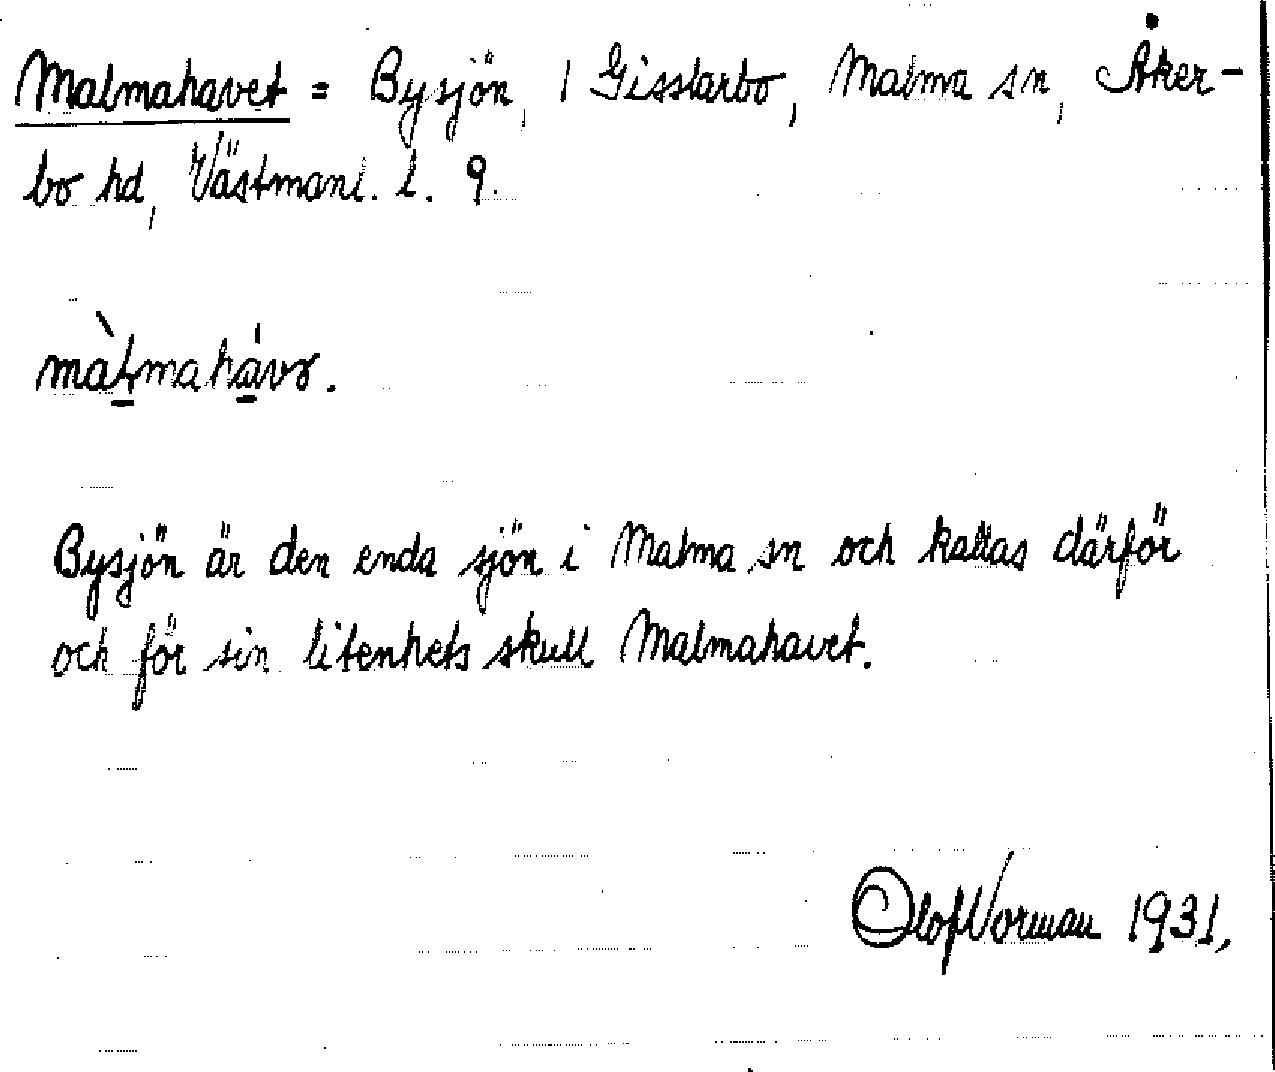 Malmahavet = Bysjön, 1 Gisslarbo, Malma sn, Åker-
bo hd, Västmanl. l. 9.
màlmahávə.
Bysjön är den enda sjön i Malma sn och kallas därför
och för sin litenhets skull Malmahavet.
Olof Norman 1931,